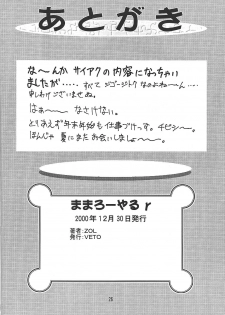 あとがき
な〜んか サイアクの内容になっちゃい
ましたが…… すべて ジゴージトク なのよねー…
申しわけございませぬ。
はぁ〜 なさけない。
とりあえず年末年始も仕事づけっす。チビシー。
ほんじゃ 夏にまたお会いしましょー。
ままろーやるr
2000年12月30日発行
著者:ZOL
発行:VETO
26